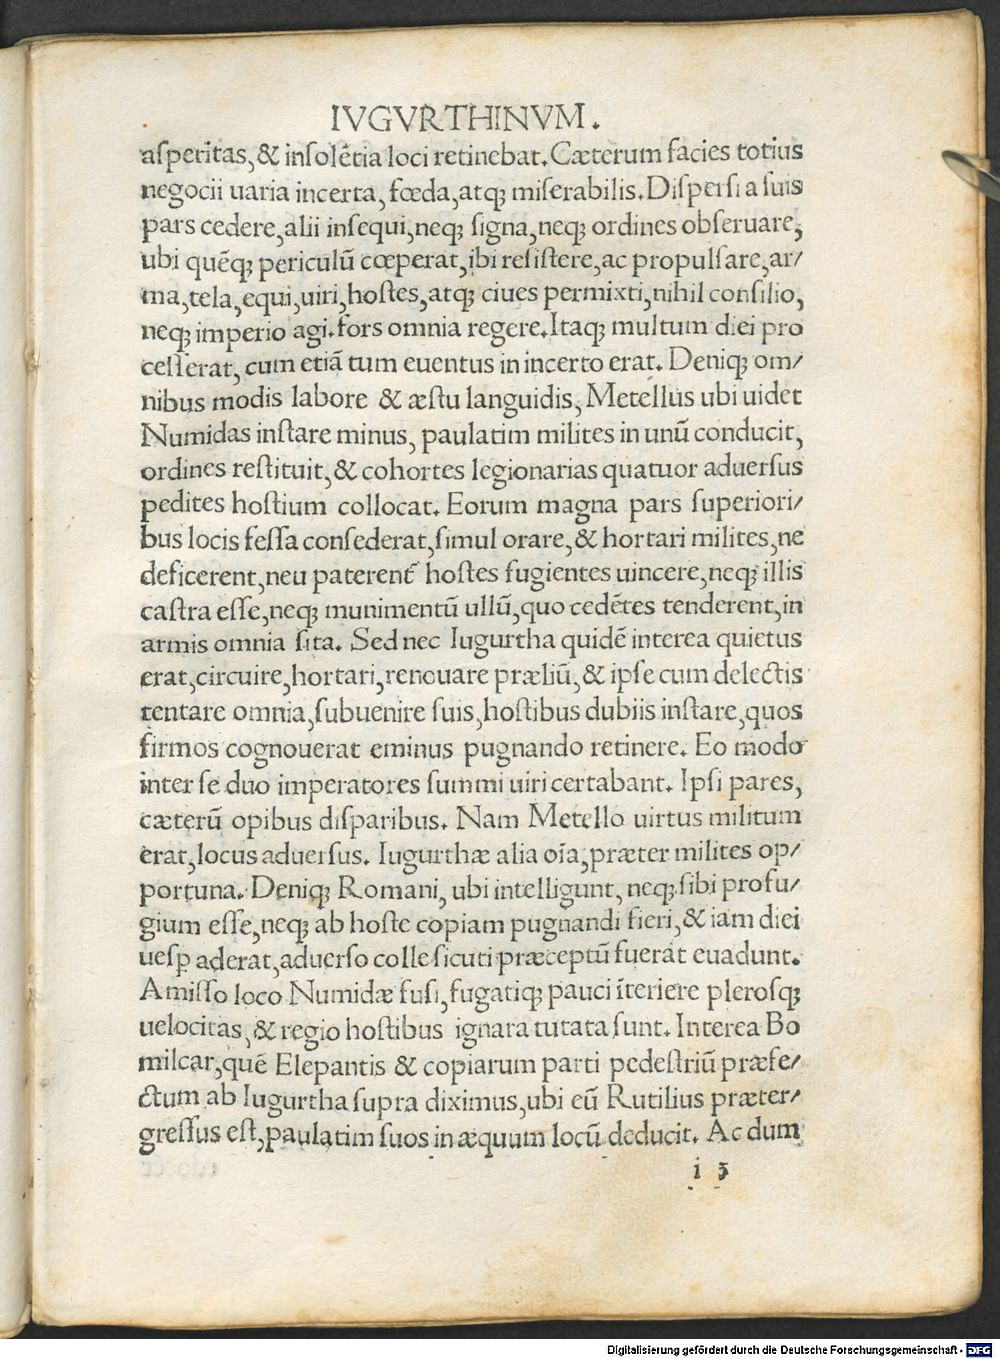 IVGVRTHINVM.
asperitas, & insolẽtia loci retinebat. Cæterum facies totius
negocii uaria incerta, fœda, atq; miserabilis. Dispersi a suis
pars cedere, alii insequi, neq; signa, neq; ordines obseruare,
ubi quẽq; periculũ cœperat, ibi resistere, ac propulsare, ar/
ma, tela, equi, uiri, hostes, atq; ciues permixti, nihil consilio,
neq; imperio agi. fors omnia regere. Itaq; multum diei pro
cesserat, cum etiã tum euentus in incerto erat. Deniq; om/
nibus modis labore & æstu languidis, Metellus ubi uidet
Numidas instare minus, paulatim milites in unũ conducit,
ordines restituit, & cohortes legionarias quatuor aduersus
pedites hostium collocat. Eorum magna pars superiori/
bus locis fessa consederat, simul orare, & hortari milites, ne
deficerent, neu paterent᷑ hostes fugientes uincere, neq; illis
castra esse, neq; munimentũ ullũ, quo cedẽtes tenderent, in
armis omnia sita. Sed nec Iugurtha quidẽ interea quietus
erat, circuire, hortari, renouare præliũ, & ipse cum delectis
tentare omnia, subuenire suis, hostibus dubiis instare, quos
firmos cognouerat eminus pugnando retinere. Eo modo
inter se duo imperatores summi uiri certabant. Ipsi pares,
cæterũ opibus disparibus. Nam Metello uirtus militum
erat, locus aduersus. Iugurthæ alia oĩa, præter milites op/
portuna. Deniq; Romani, ubi intelligunt, neq; sibi profu/
gium esse, neq; ab hoste copiam pugnandi fieri, & iam diei
uesꝑ aderat, aduerso colle sicuti præceptũ fuerat euadunt.
Amisso loco Numidæ fusi, fugatiq; pauci ĩteriere plerosq;
uelocitas, & regio hostibus ignara tutata sunt. Interea Bo
milcar, quẽ Elepantis & copiarum parti pedestriũ præfe/
ctum ab Iugurtha supra diximus, ubi eũ Rutilius præter/
gressus est, paulatim suos in æquum locũ deducit. Ac dum
i 3
Digitalisierung gefördert durch die Deutsche Forschungsgemeinschaft - DFG